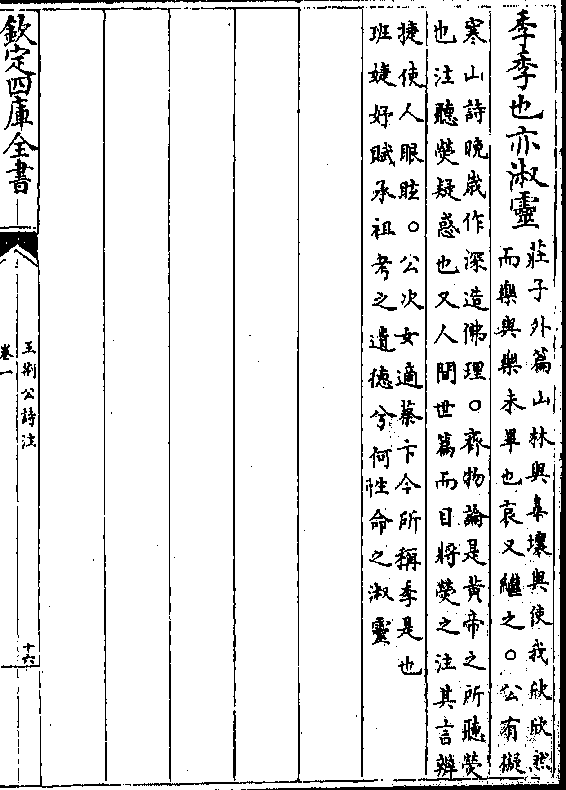 季季也亦淑靈
莊子外篇山林與臯壤與使我欣欣然
而樂與樂未畢也哀又繼之○公有擬
寒山詩晚歲作深造佛理○齊物論是黄帝之所聽熒
也注聽熒疑惑也又人間世篇而目將熒之注其言辨
捷使人眼眩○公次女適蔡卞今所稱季是也
班婕妤賦承祖考之遺德兮何性命之淑靈
欽定四庫全書
王荆公詩注
卷一
十六